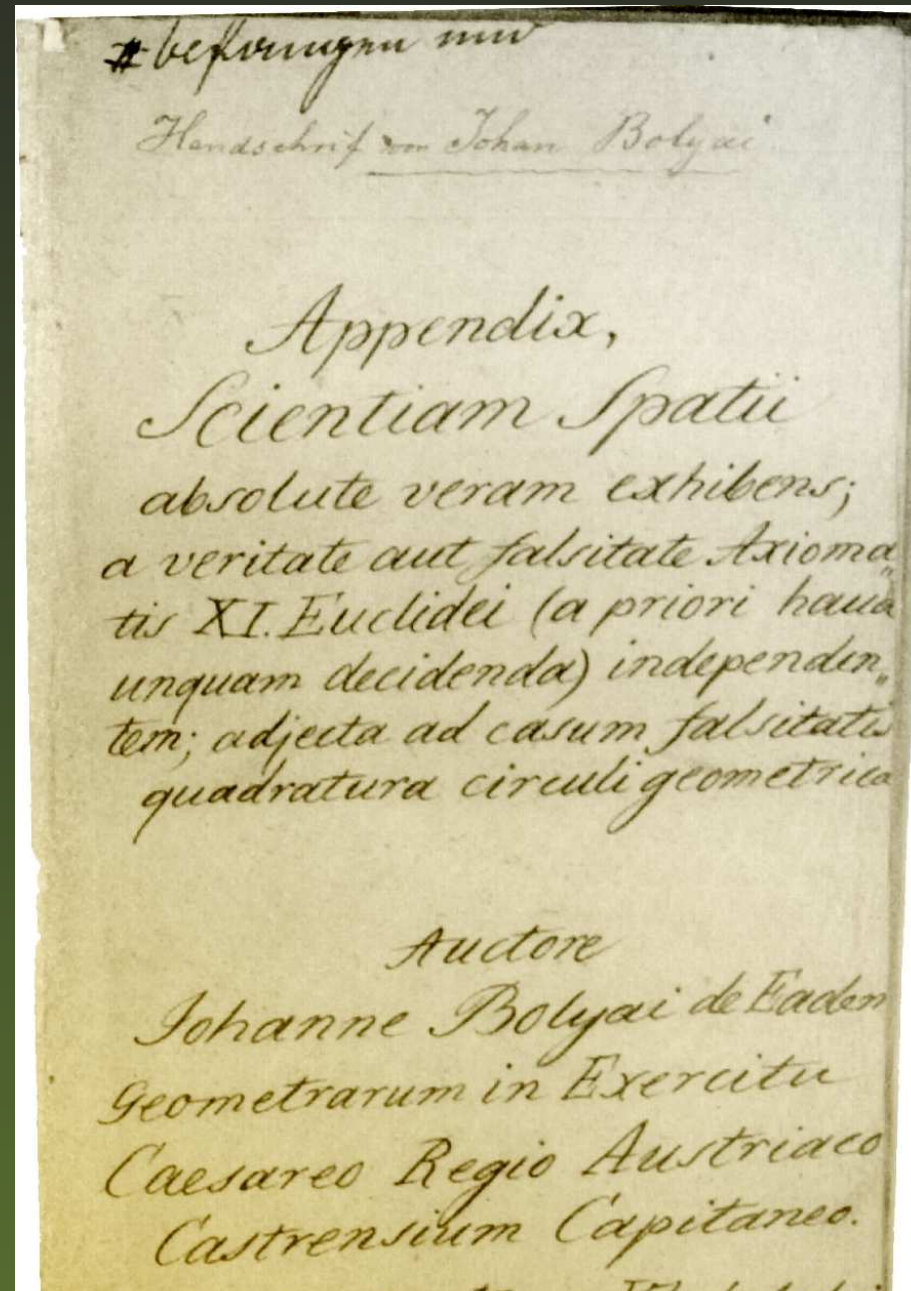 Handschrif von Johan Bolyai
Appendix,
Scientiam Spatii
absolute veram exhibens;
a veritate aut falsitate Axioma„
tis XI. Euclidei (a priori haud
unquam decidenda) independen„
tem; adjecta ad casum falsitatis
quadratura circuli geometrica
Auctore
Johanne Bolyai de Eadem
Geometrarum in Exercitu
Caesareo Regio Austriaco
Castrensium Capitaneo.